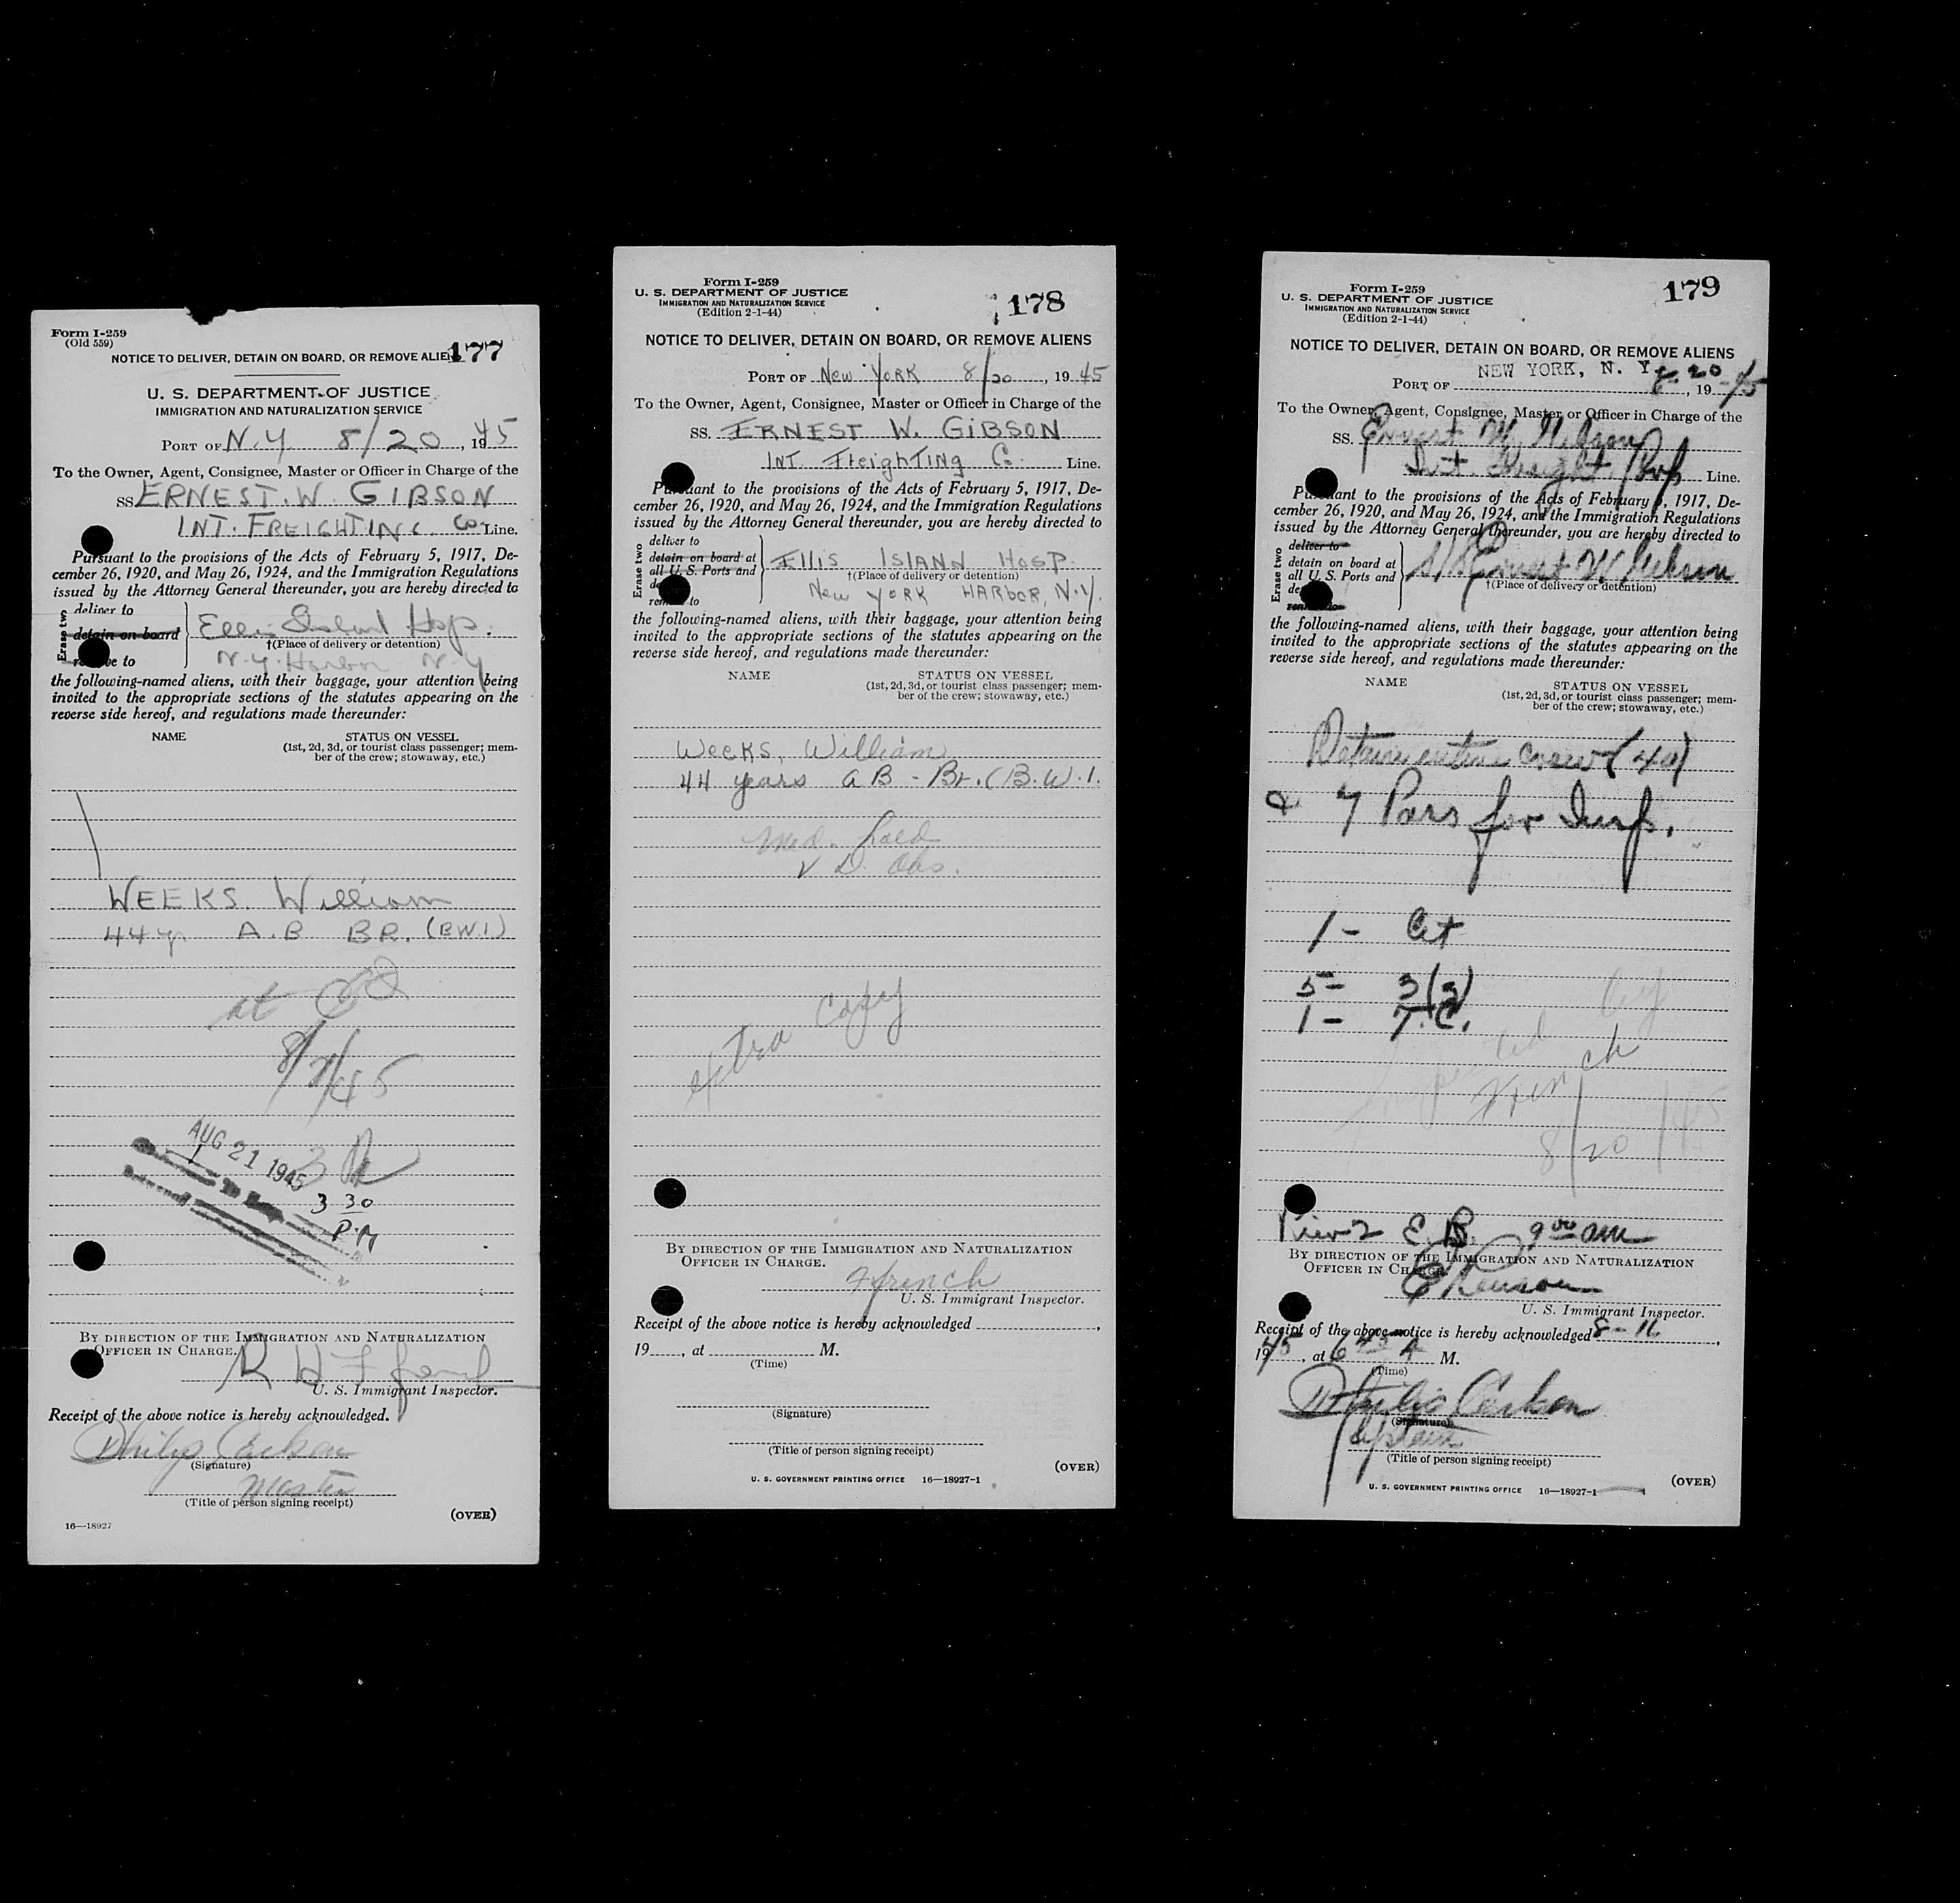 Form I-259
(Old 559)
177
NOTICE TO DELIVER, DETAIN ON BOARD, OR REMOVE ALIENS
U. S. DEPARTMENT OF JUSTICE
IMMIGRATION AND NATURALIZATION SERVICE
PORT OF N.Y 8/20, 1945
To the Owner, Agent, Consignee, Master or Officer in Charge of the
SS ERNEST. W. GIBSON
INT. FREIGHTING. Co. Line.
Pursuant to the provisions of the Acts of February 5, 1917, De-
cember 26, 1920, and May 26, 1924, and the Immigration Regulations
issued by the Attorney General thereunder, you are hereby directed to
Erase two
deliver to
detain on board
remove to
Ellis Island Hosp.
†(Place of delivery or detention)
N.Y. Harbor N.Y
the following-named aliens, with their baggage, your attention being
invited to the appropriate sections of the statutes appearing on the
reverse side hereof, and regulations made thereunder:
NAME STATUS ON VESSEL
(1st, 2d, 3d, or tourist class passenger; mem-
ber of the crew; stowaway, etc.)
WEEKS. William
44 yr A.B BR. (B.W.I)
at
AUG 21 1945
3 30
P.M
BY DIRECTION OF THE IMMIGRATION AND NATURALIZATION
OFFICER IN CHARGE.
U. S. Immigrant Inspector.
Receipt of the above notice is hereby acknowledged.
Philip Carlson
(Signature)
Master
(Title of person signing receipt)
(OVER)
16—18927
Form I-259
U. S. DEPARTMENT OF JUSTICE
IMMIGRATION AND NATURALIZATION SERVICE
(Edition 2-1-44)
178
NOTICE TO DELIVER, DETAIN ON BOARD, OR REMOVE ALIENS
PORT OF New York 8/20, 1945
To the Owner, Agent, Consignee, Master or Officer in Charge of the
SS. ERNEST W. GIBSON
INT. Freighting Co. Line.
Pursuant to the provisions of the Acts of February 5, 1917, De-
cember 26, 1920, and May 26, 1924, and the Immigration Regulations
issued by the Attorney General thereunder, you are hereby directed to
Erase two
deliver to
detain on board at
all U. S. Ports and
remove to
Ellis ISLAND HOSP.
†(Place of delivery or detention)
New York HARbor, N.Y.
the following-named aliens, with their baggage, your attention being
invited to the appropriate sections of the statutes appearing on the
reverse side hereof, and regulations made thereunder:
NAME STATUS ON VESSEL
(1st, 2d, 3d, or tourist class passenger; mem-
ber of the crew; stowaway, etc.)
Weeks, William
44 years AB - Br. (B.W.I.
Med. hold
V D. Obs.
extra copy
BY DIRECTION OF THE IMMIGRATION AND NATURALIZATION
OFFICER IN CHARGE.
Ffrench
U. S. Immigrant Inspector.
Receipt of the above notice is hereby acknowledged ,
19 , at M.
(Time)
(Signature)
(Title of person signing receipt)
(OVER)
U. S. GOVERNMENT PRINTING OFFICE 16—18927-1
Form I-259
U. S. DEPARTMENT OF JUSTICE
IMMIGRATION AND NATURALIZATION SERVICE
(Edition 2-1-44)
179
NOTICE TO DELIVER, DETAIN ON BOARD, OR REMOVE ALIENS
PORT OF NEW YORK, N. Y. 8-20, 19-45
To the Owner, Agent, Consignee, Master or Officer in Charge of the
SS. Ernest W. Gibson
Int. Freight Corp Line.
Pursuant to the provisions of the Acts of February 5, 1917, De-
cember 26, 1920, and May 26, 1924, and the Immigration Regulations
issued by the Attorney General thereunder, you are hereby directed to
Erase two
deliver to
detain on board at
all U. S. Ports and
remove to
S/S Ernest W Gibson
†(Place of delivery or detention)
the following-named aliens, with their baggage, your attention being
invited to the appropriate sections of the statutes appearing on the
reverse side hereof, and regulations made thereunder:
NAME STATUS ON VESSEL
(1st, 2d, 3d, or tourist class passenger; mem-
ber of the crew; stowaway, etc.)
Detain entire crew (40)
& 7 Pass for Insp.
1 - Cit
5 - 3(2)
1 - T.C.
8/20/45
Pier 2 E.B. 9 00 am
BY DIRECTION OF THE IMMIGRATION AND NATURALIZATION
OFFICER IN CHARGE.
U. S. Immigrant Inspector.
Receipt of the above notice is hereby acknowledged 8-16,
1945, at 6 45 A M.
(Time)
Philip Carlson
(Signature)
Captain
(Title of person signing receipt)
(OVER)
U. S. GOVERNMENT PRINTING OFFICE 16—18927-1